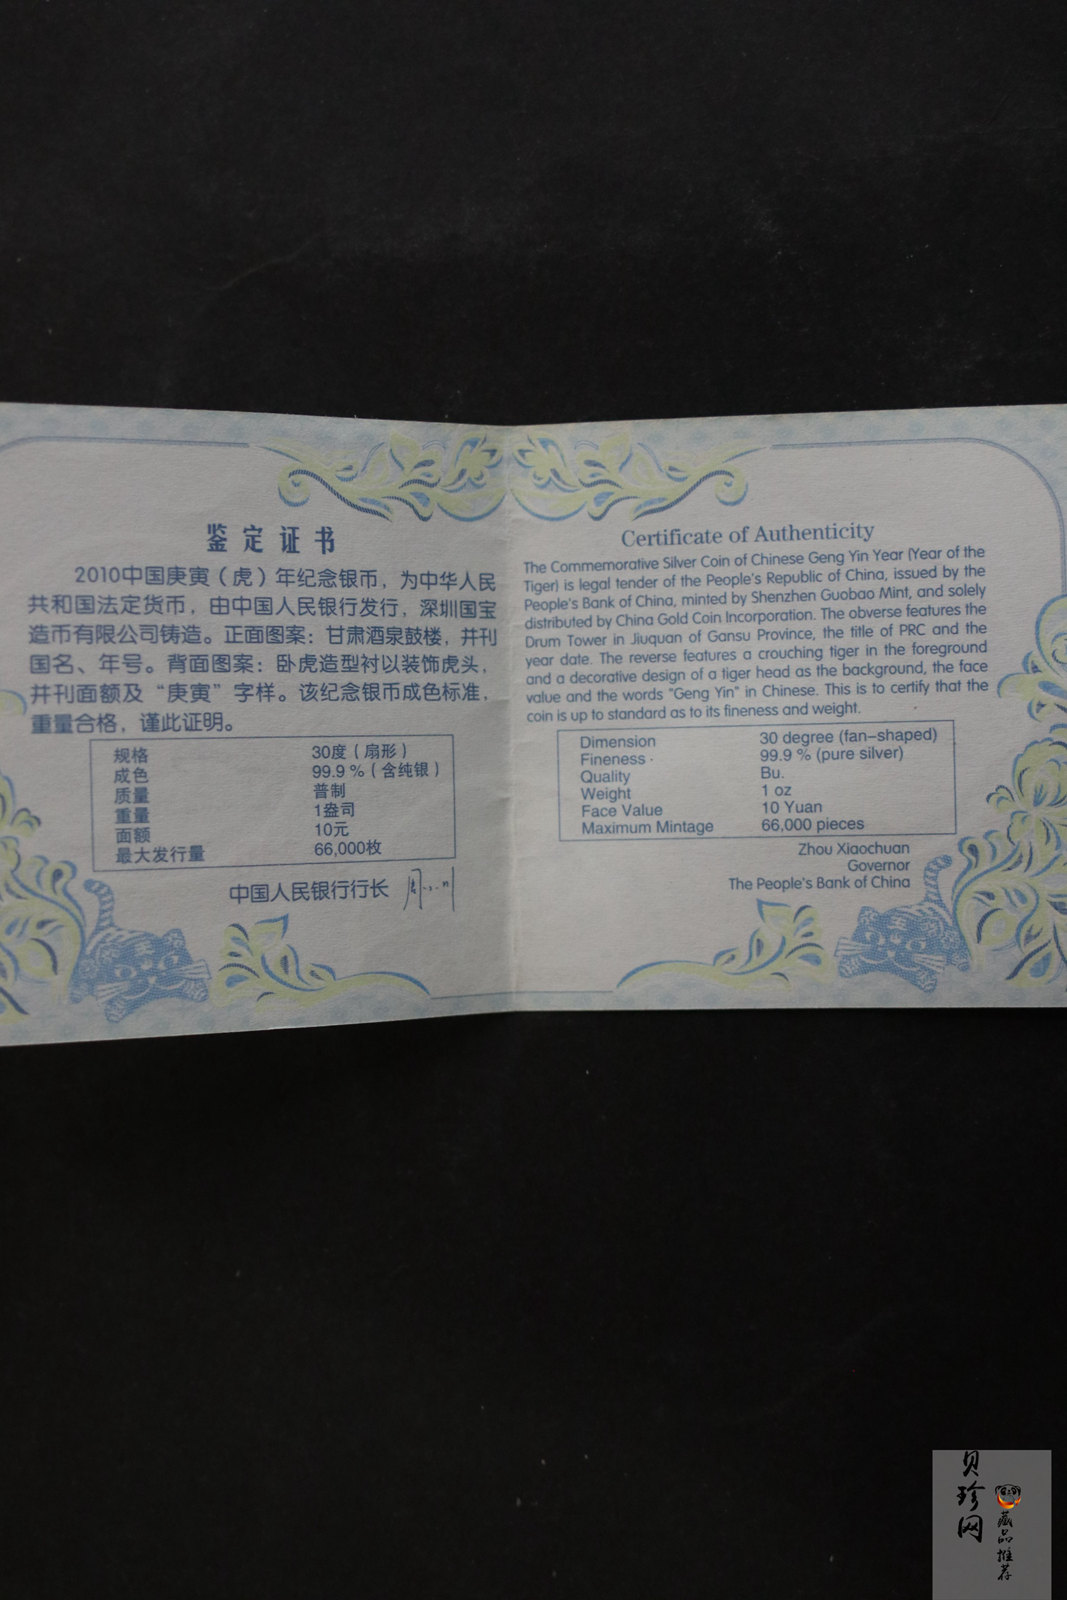 鉴定证书
2010中国庚寅（虎）年纪念银币，为中华人民
共和国法定货币，由中国人民银行发行，深圳国宝
造币有限公司铸造。正面图案：甘肃酒泉鼓楼，并刊
国名、年号。背面图案：卧虎造型衬以装饰虎头，
并刊面额及“庚寅”字样。该纪念银币成色标准，
重量合格，谨此证明。
规格 30度（扇形）
成色 99.9 %（含纯银）
质量 普制
重量 1盎司
面额 10元
最大发行量 66,000枚
中国人民银行行长
Certificate of Authenticity
The Commemorative Silver Coin of Chinese Geng Yin Year (Year of the
Tiger) is legal tender of the People's Republic of China, issued by the
People's Bank of China, minted by Shenzhen Guobao Mint, and solely
distributed by China Gold Coin Incorporation. The obverse features the
Drum Tower in Jiuquan of Gansu Province, the title of PRC and the
year date. The reverse features a crouching tiger in the foreground
and a decorative design of a tiger head as the background, the face
value and the words "Geng Yin" in Chinese. This is to certify that the
coin is up to standard as to its fineness and weight.
Dimension 30 degree (fan-shaped)
Fineness 99.9 % (pure silver)
Quality Bu.
Weight 1 oz
Face Value 10 Yuan
Maximum Mintage 66,000 pieces
Zhou Xiaochuan
Governor
The People's Bank of China
贝珍网
藏品推荐